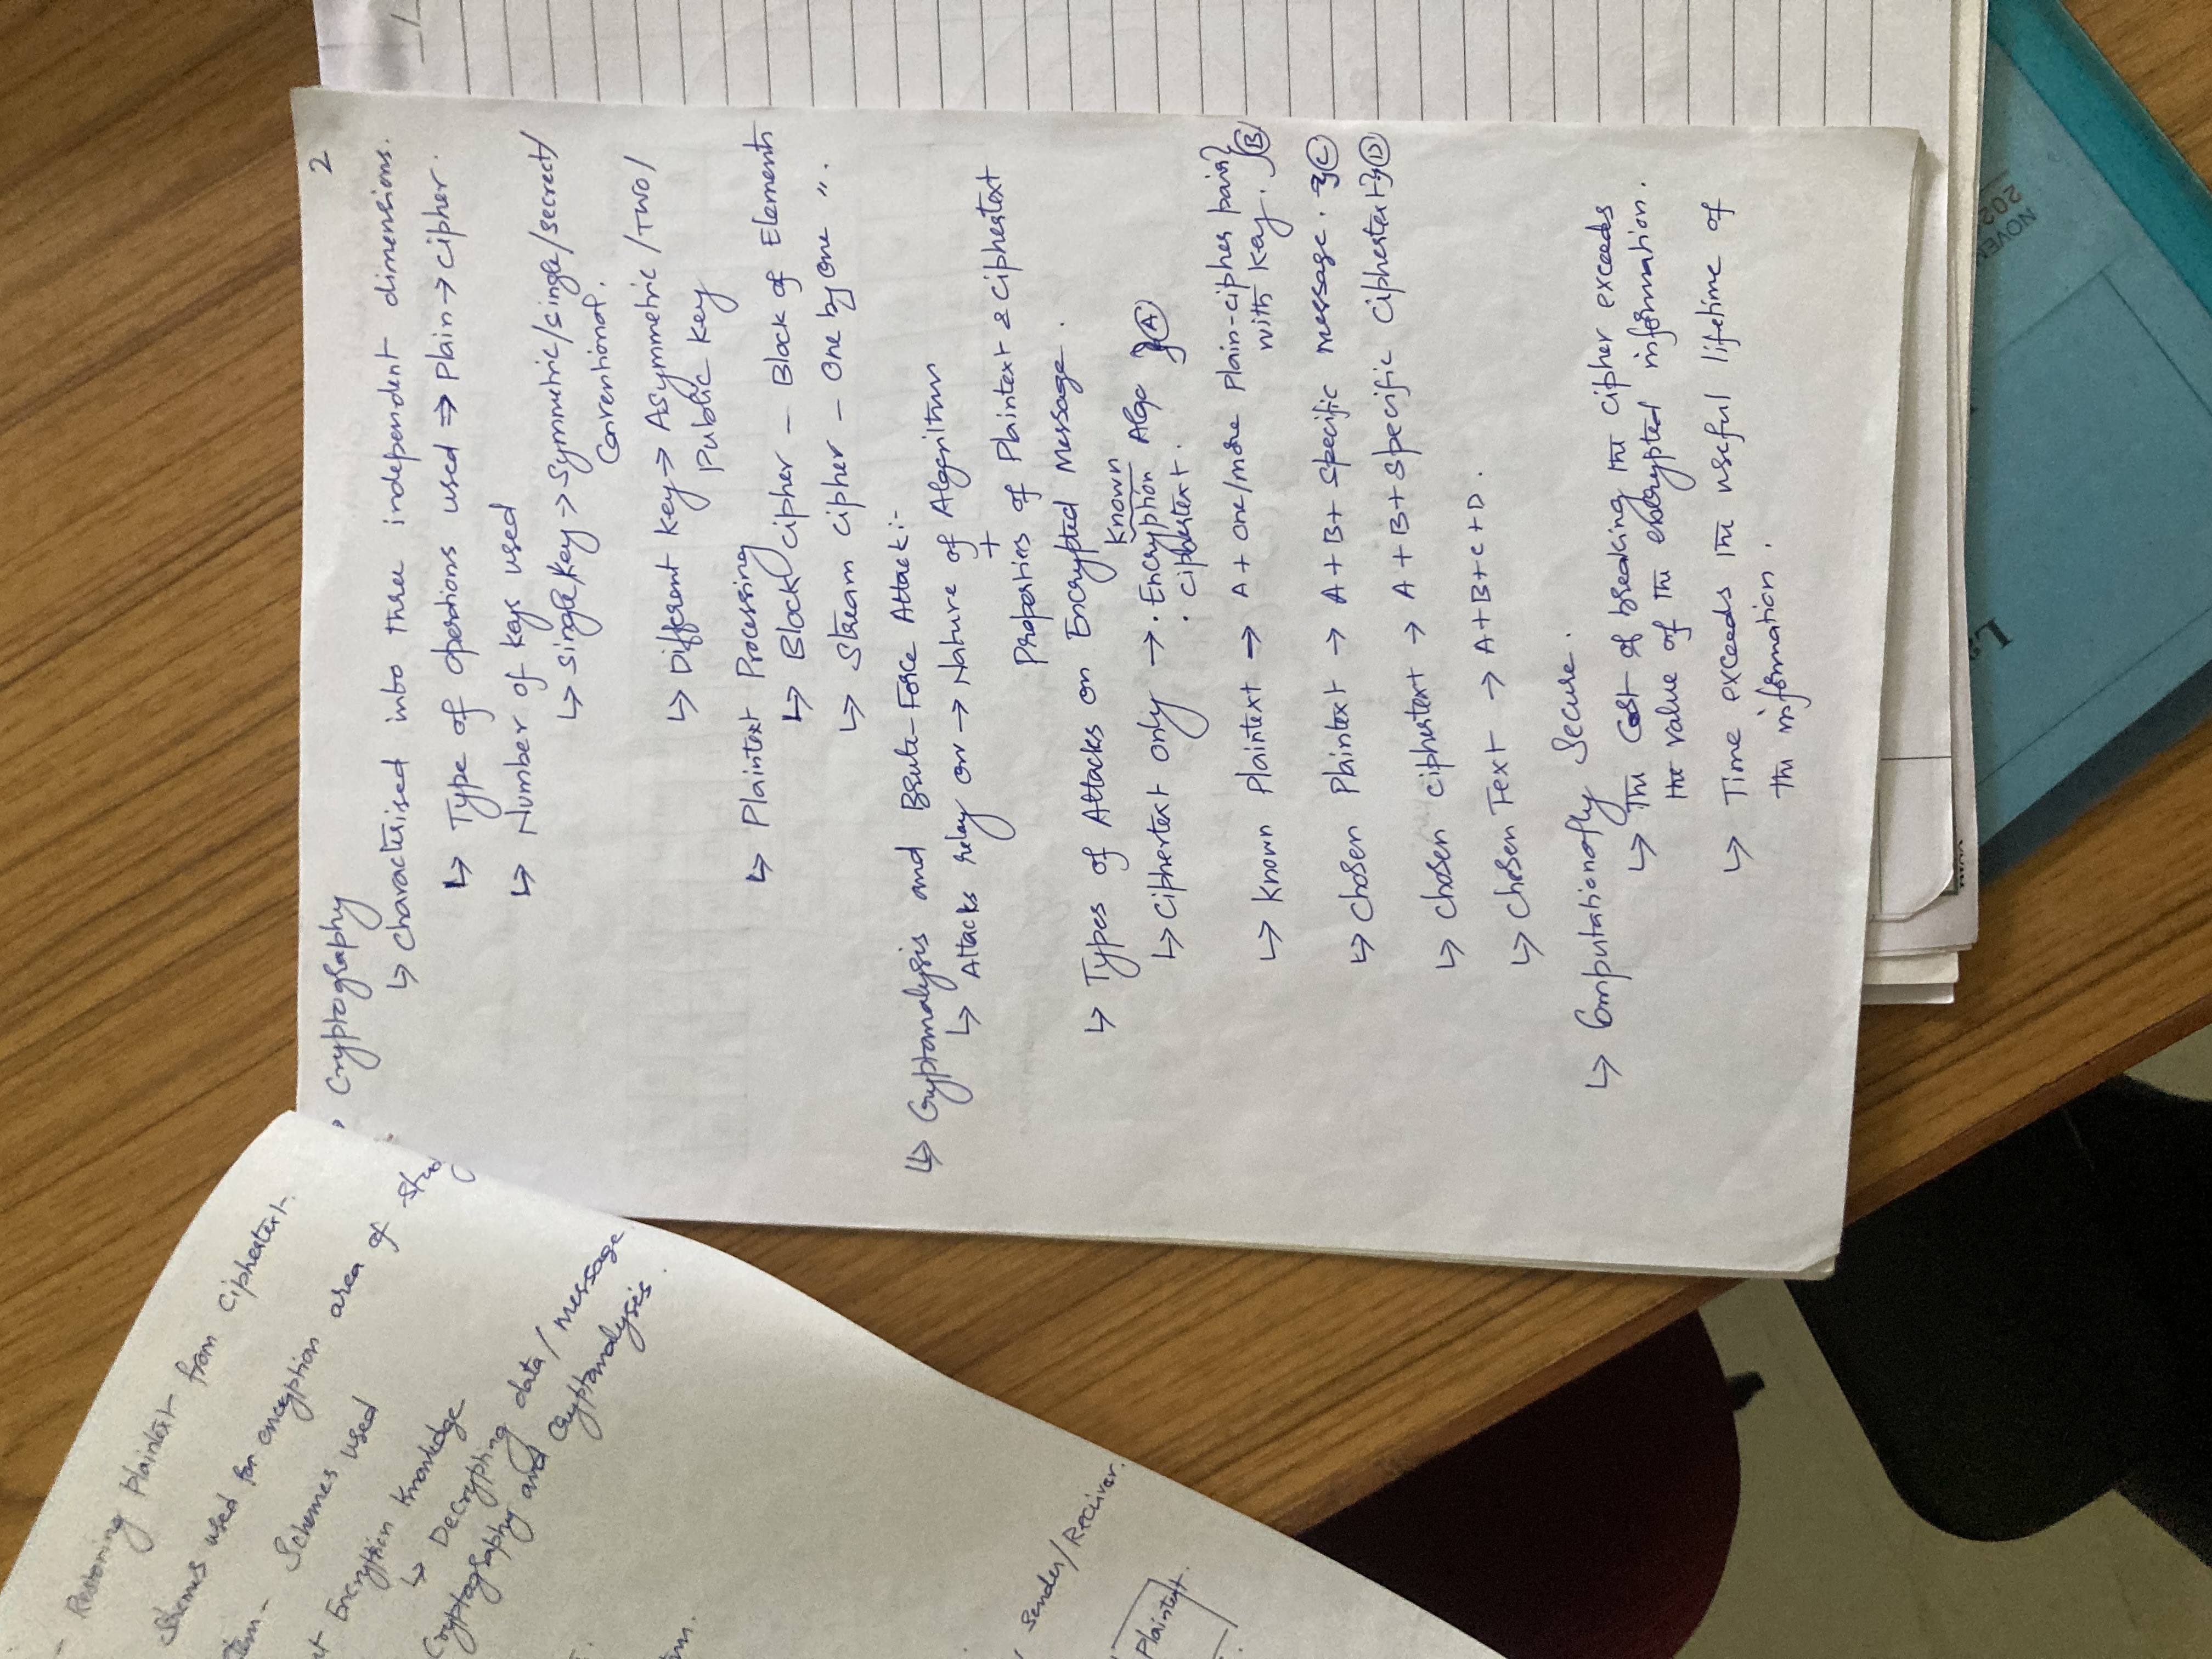 - Restoring Plaintext from Ciphertext.
Shemes used for encryption area of stud
tem - Schemes used
Encryption Knowledge
↳ Decrypting data/message
Cryptography and cryptanalysis.
Sender/Reciver.
Plaintext.
2
Cryptography
↳ Characterised into three independent dimensions.
↳ Type of operations used ⇒ Plain → cipher.
↳ Number of keys used
↳ Single key → Symmetric/single/secrect/
Conventional.
↳ Different key → Asymmetric/Two/
Public key
↳ Plaintext Processing
↳ Block cipher - Block of Elements
↳ Stream cipher - One by One ".
↳ Cryptanalysis and Brute-Force Attack:-
↳ Attacks relay on → Nature of Algorithm
+
Properties of Plaintext & Ciphertext
↳ Types of Attacks on Encrypted Message.
Known
↳ Ciphertext only → • Encryption Algo } A
• Ciphertext.
↳ Known Plaintext → A + one/more Plain-cipher pairs }
with key. B
↳ Chosen Plaintext → A + B + Specific message. } C
↳ Chosen Ciphertext → A + B + Specific Ciphertext } D
↳ Chosen Text → A+B+C+D.
↳ Computationally Secure.
↳ The Cost of breaking the cipher exceeds
the value of the encrypted information.
↳ Time exceeds the useful lifetime of
the information.
1
NOVEM
202